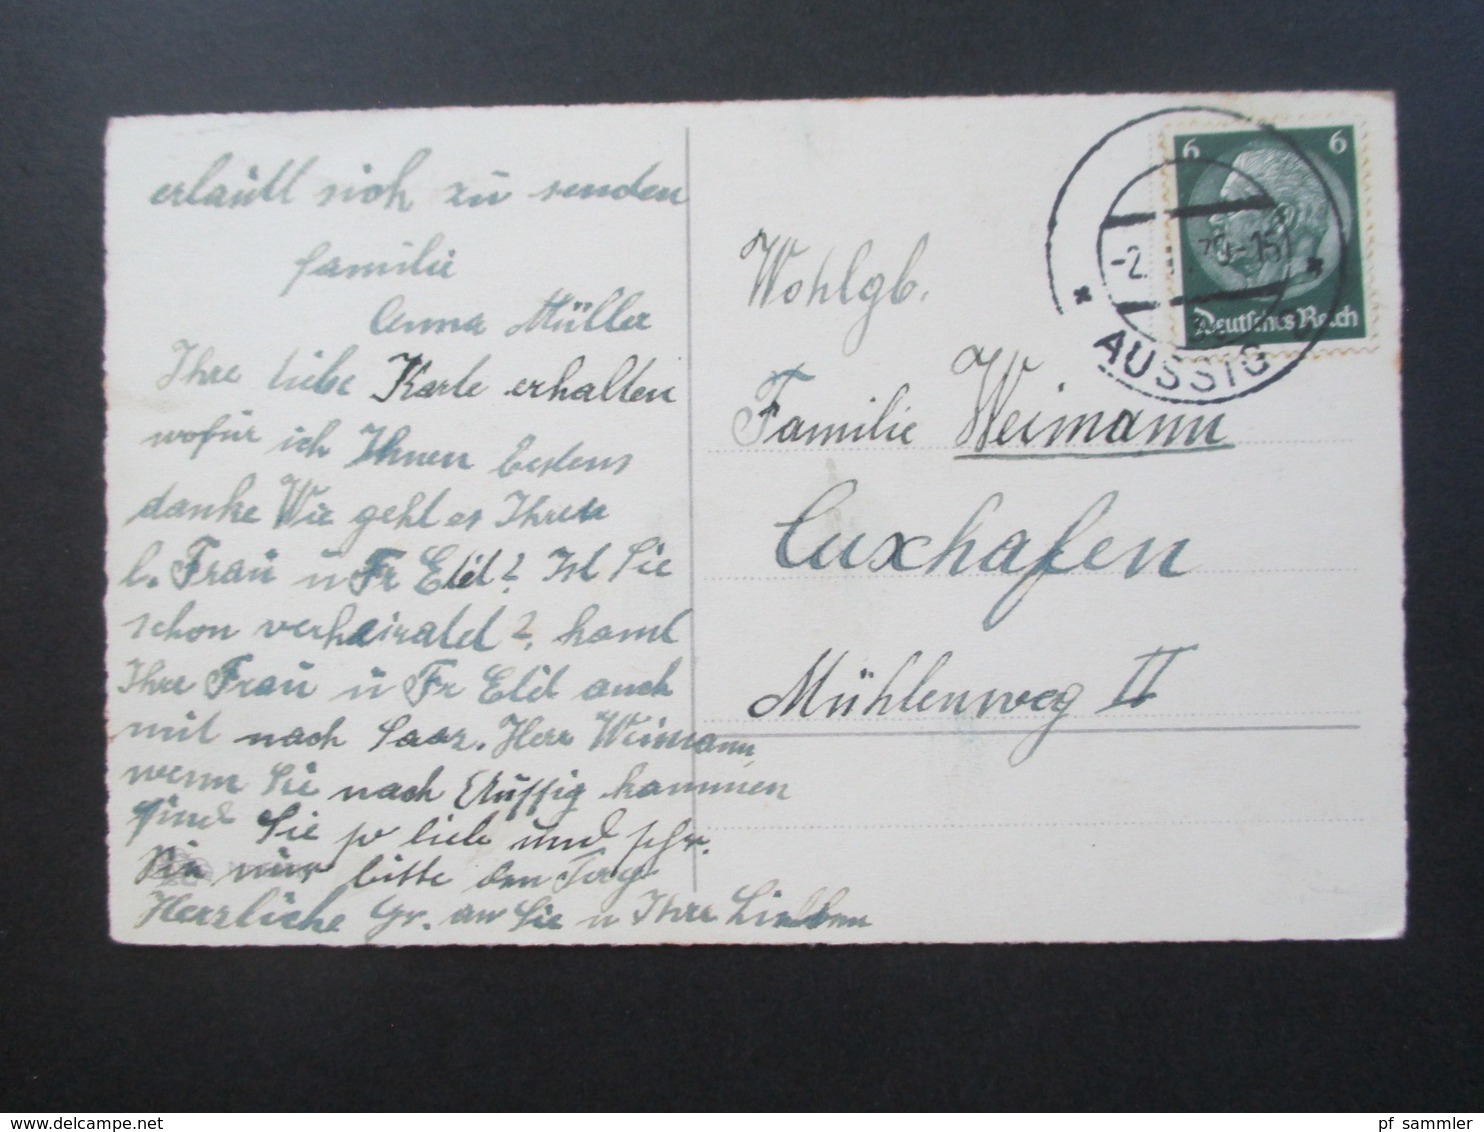 erlaubt sich zu senden
Familie
Anna Müller
Ihre liebe Karte erhalten
wofür ich Ihnen bestens
danke Wie geht es Ihrer
l. Frau u Fr Elil? Ist Sie
schon verheiratet? kamt
Ihre Frau u Fr Elil auch
mit nach Saaz. Herr Weimann
wenn Sie nach Aussig kommen
sind Sie so lieb und
Sie nur bitte den Tag
Herzliche Gr. an Sie u Ihre Lieben
6 6
Deutsches Reich
-2. -15
* AUSSIG *
Wohlgb.
Familie Weimann
Cuxhafen
Mühlenweg II
www.delcampe.net
pf_sammler